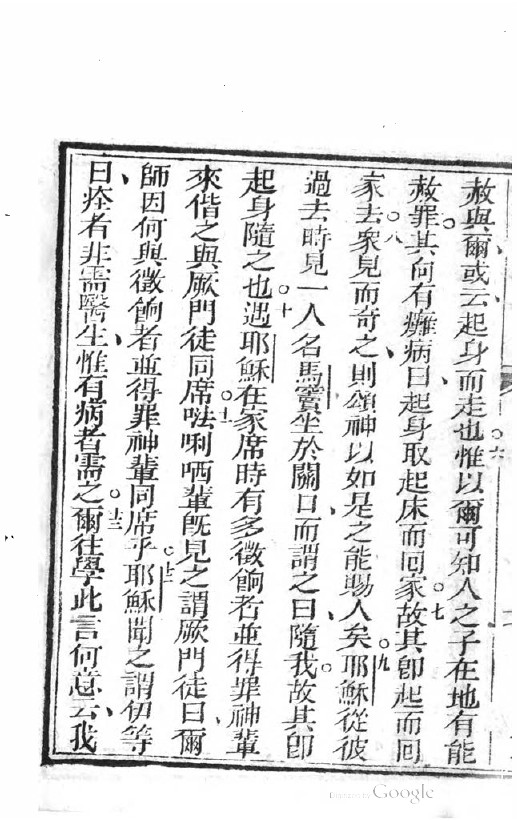 赦與爾、或云、起身而走也。六惟以爾可知人之子在地有能
赦罪。其向有癱病曰、起身取起床而回家。七故其即起而回
家去。八衆見而奇之、則頌神以如是之能賜人矣。九耶穌從彼
過去時、見一人名馬竇坐於關口、而謂之曰、隨我。故其即
起身隨之也。十遇耶穌在家席時、有多徵餉者並得罪神輩
來偕之與厥門徒同席。十一𠵽唎哂輩既見之、謂厥門徒曰、爾
師因何與徵餉者並得罪神輩同席乎。十二耶穌聞之、謂伊等
曰、痊者非需醫生、惟有病者需之。十三爾往學此言何意、云、我
Digitized by Google